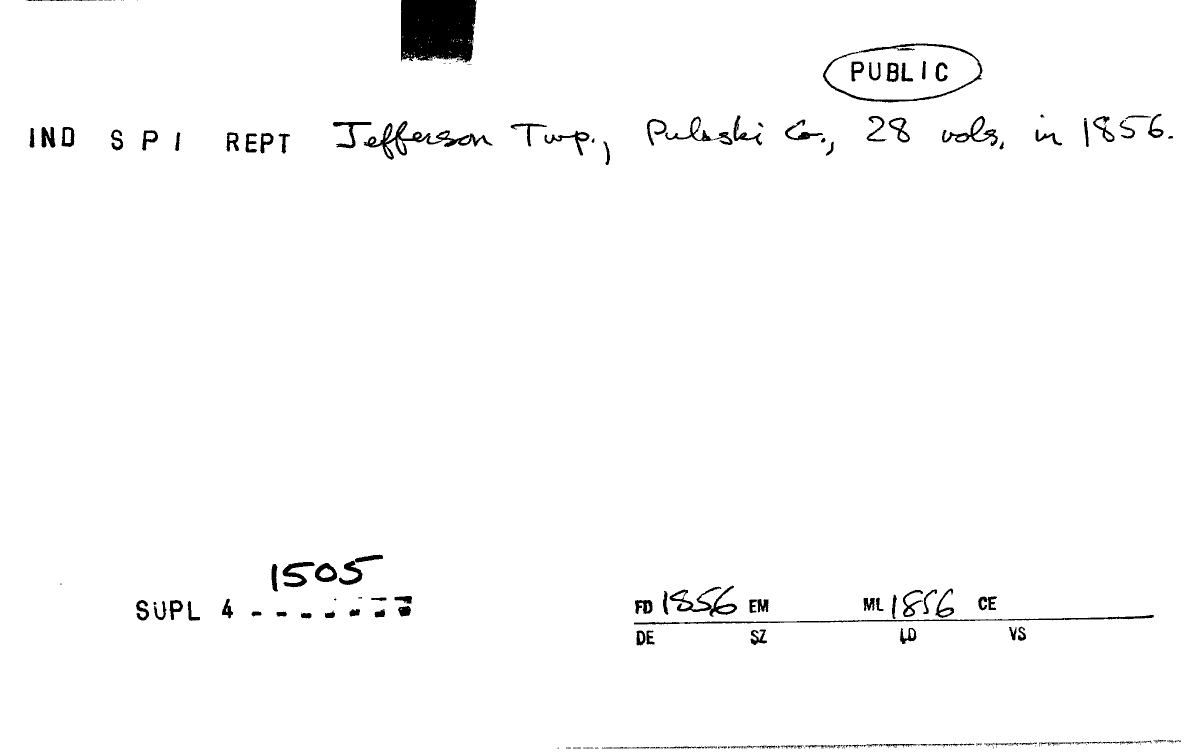 PUBLIC
IND S P I REPT Jefferson Twp., Pulaski Co., 28 vols, in 1856.
1505
SUPL 4 - - - - - - -
FD 1856 EM ML 1856 CE
DE SZ LD VS